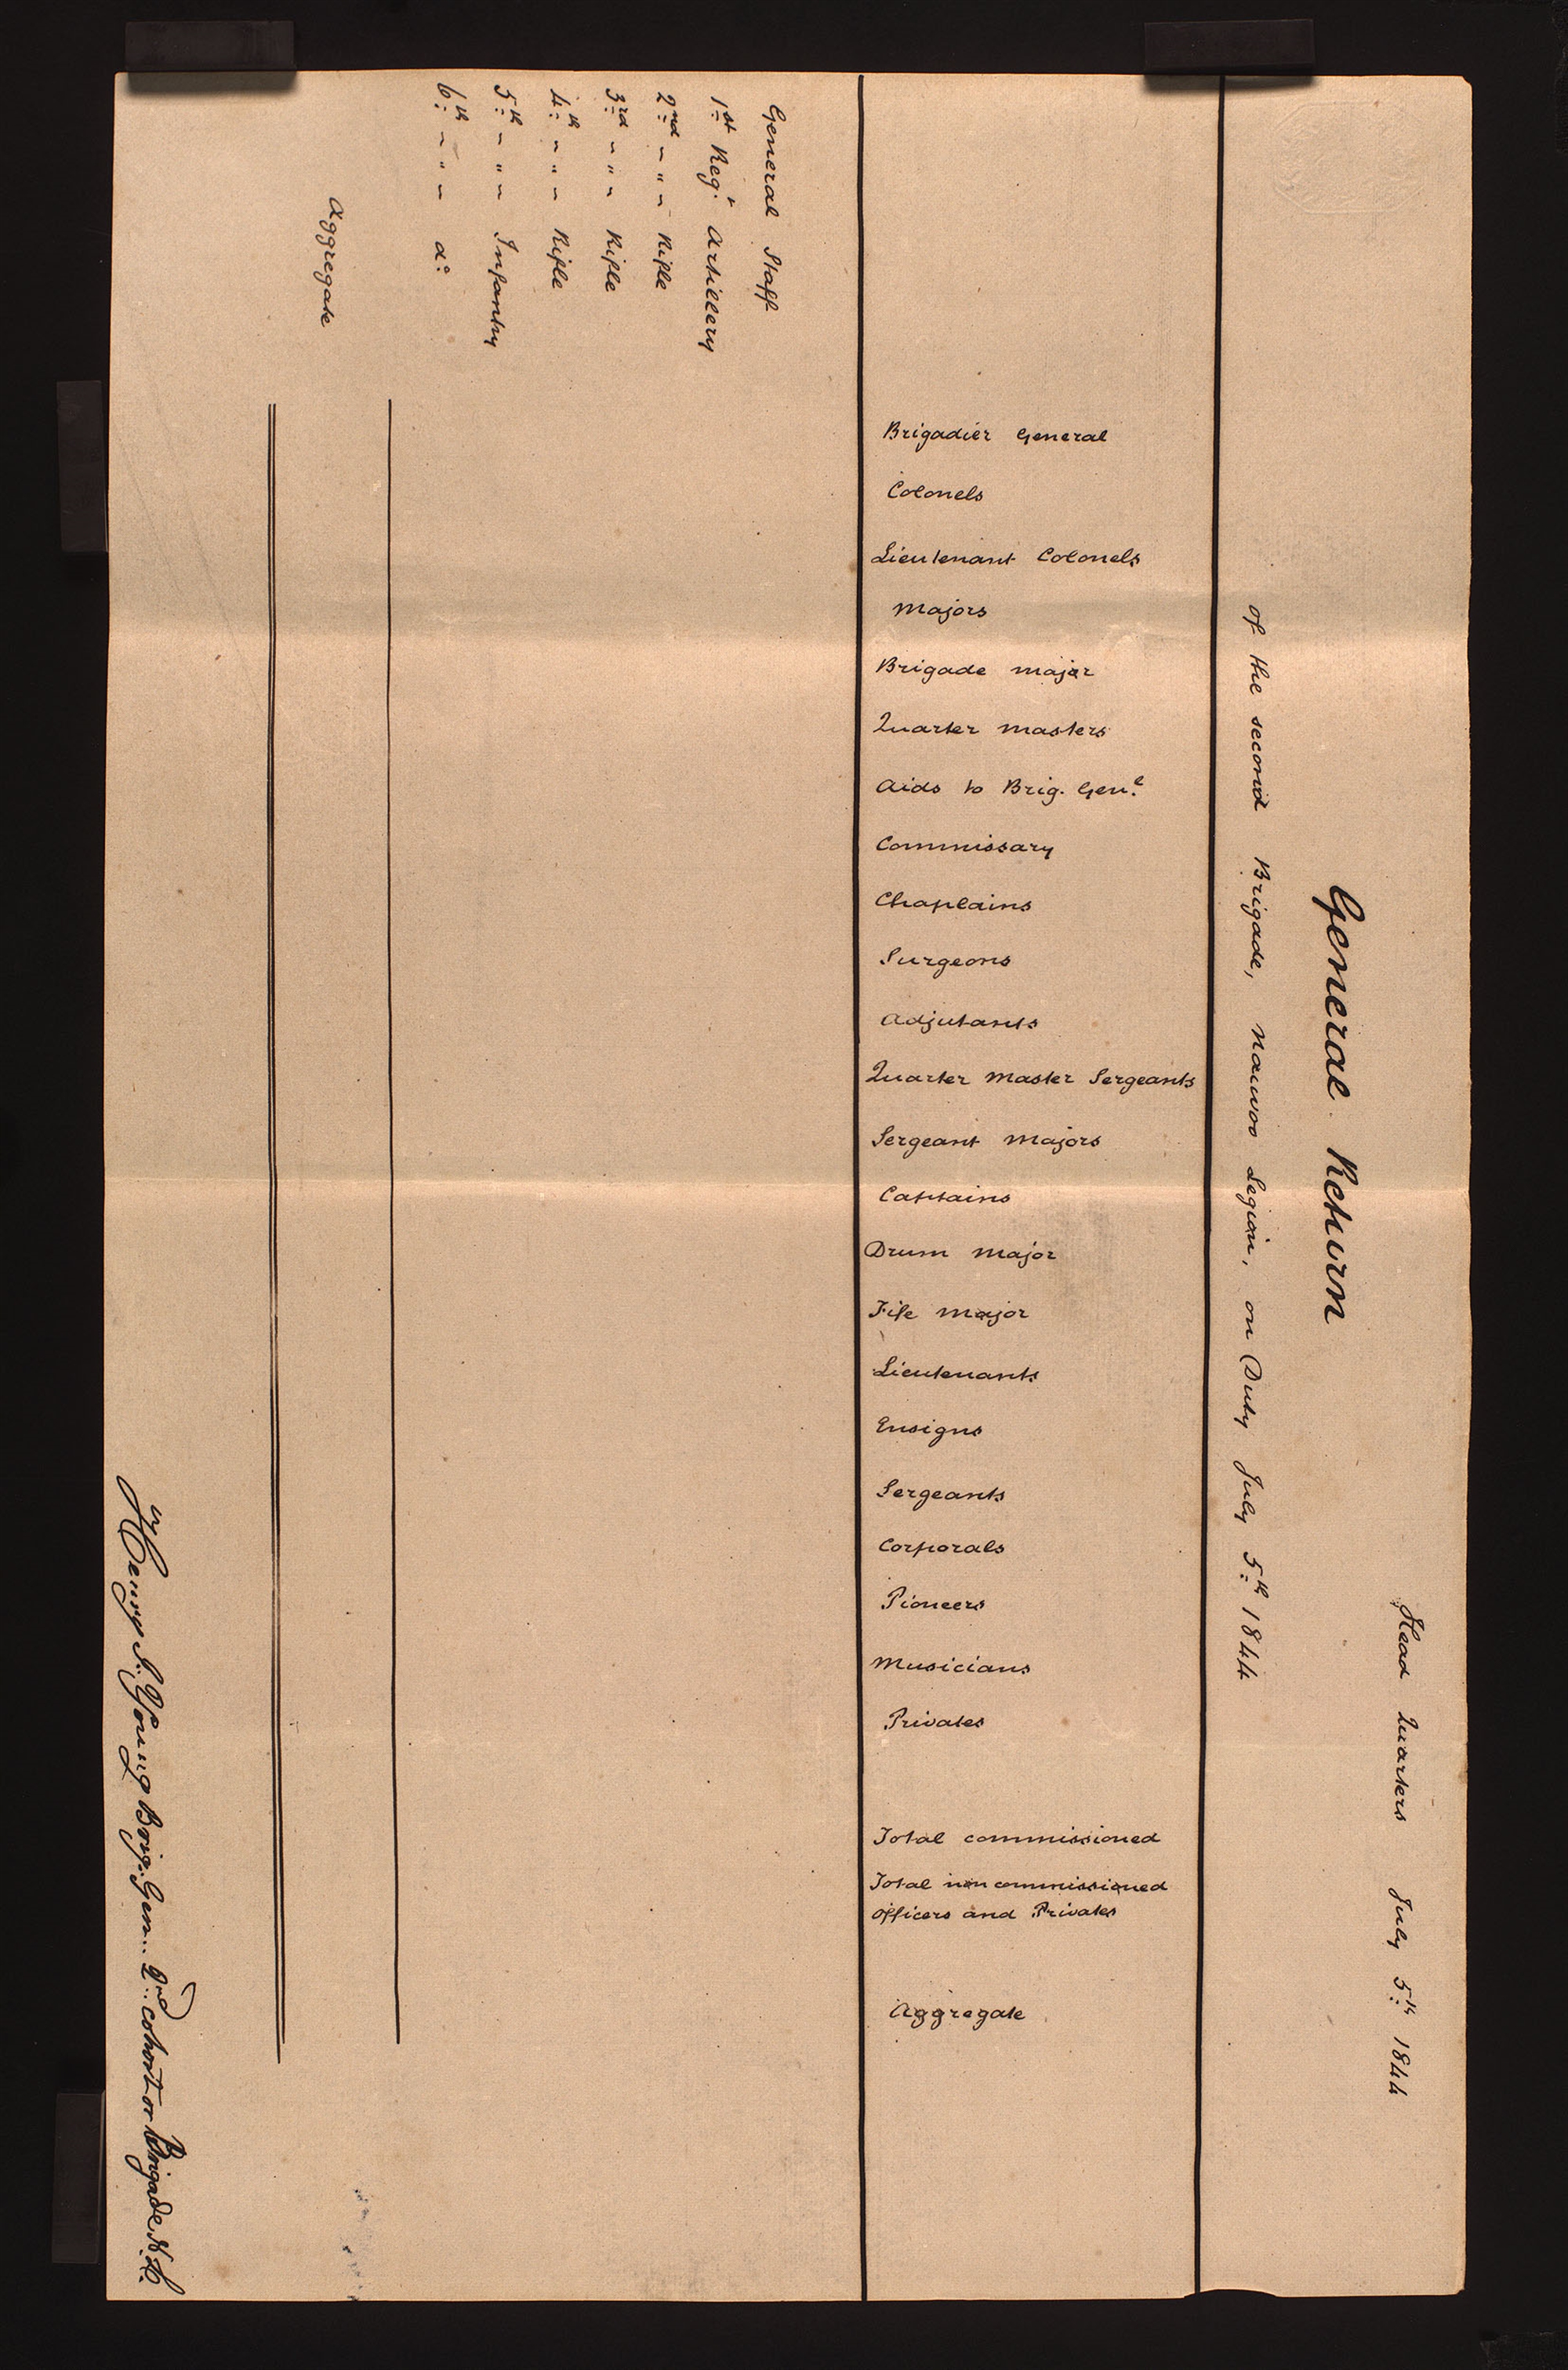 Head Quarters July 5th 1844
General Return
of the second Brigade, Nauvoo Legion, on Duty July 5th 1844
Brigadier General
Colonels
Lieutenant Colonels
Majors
Brigade major
Quarter masters
Aids to Brig. Genl
Commissary
Chaplains
Surgeons
Adjutants
Quarter Master Sergeants
Sergeant Majors
Captains
Drum Major
Fife Major
Lieutenants
Ensigns
Sergeants
Corporals
Pioneers
Musicians
Privates
Total commissioned
Total non commissioned
officers and Privates
Aggregate
General Staff
1st Regt Artillery
2nd - " - Rifle
3rd - " - Rifle
4th - " - Rifle
5th - " - Infantry
6th - " - do
Aggregate
Brig. Gen. 2nd cohort or Brigade N. L.